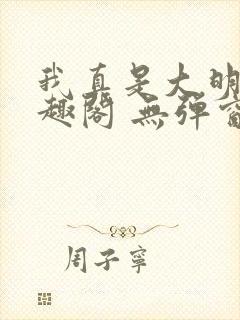 我真是大明
趣阁 無弹窗
周子寧